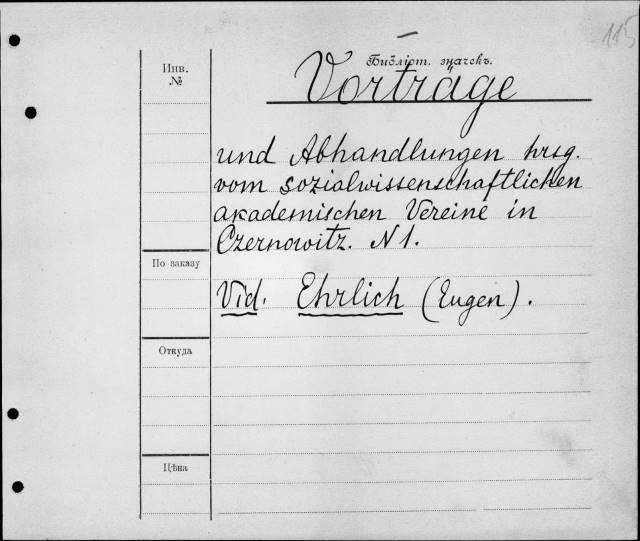 115
Инв.
№
Библіот. значекъ.
Vorträge
und Abhandlungen hrsg.
vom sozialwissenschaftlichen
akademischen Vereine in
Czernowitz. N1.
По заказу
Vid. Ehrlich (Eugen).
Откуда
Цѣна